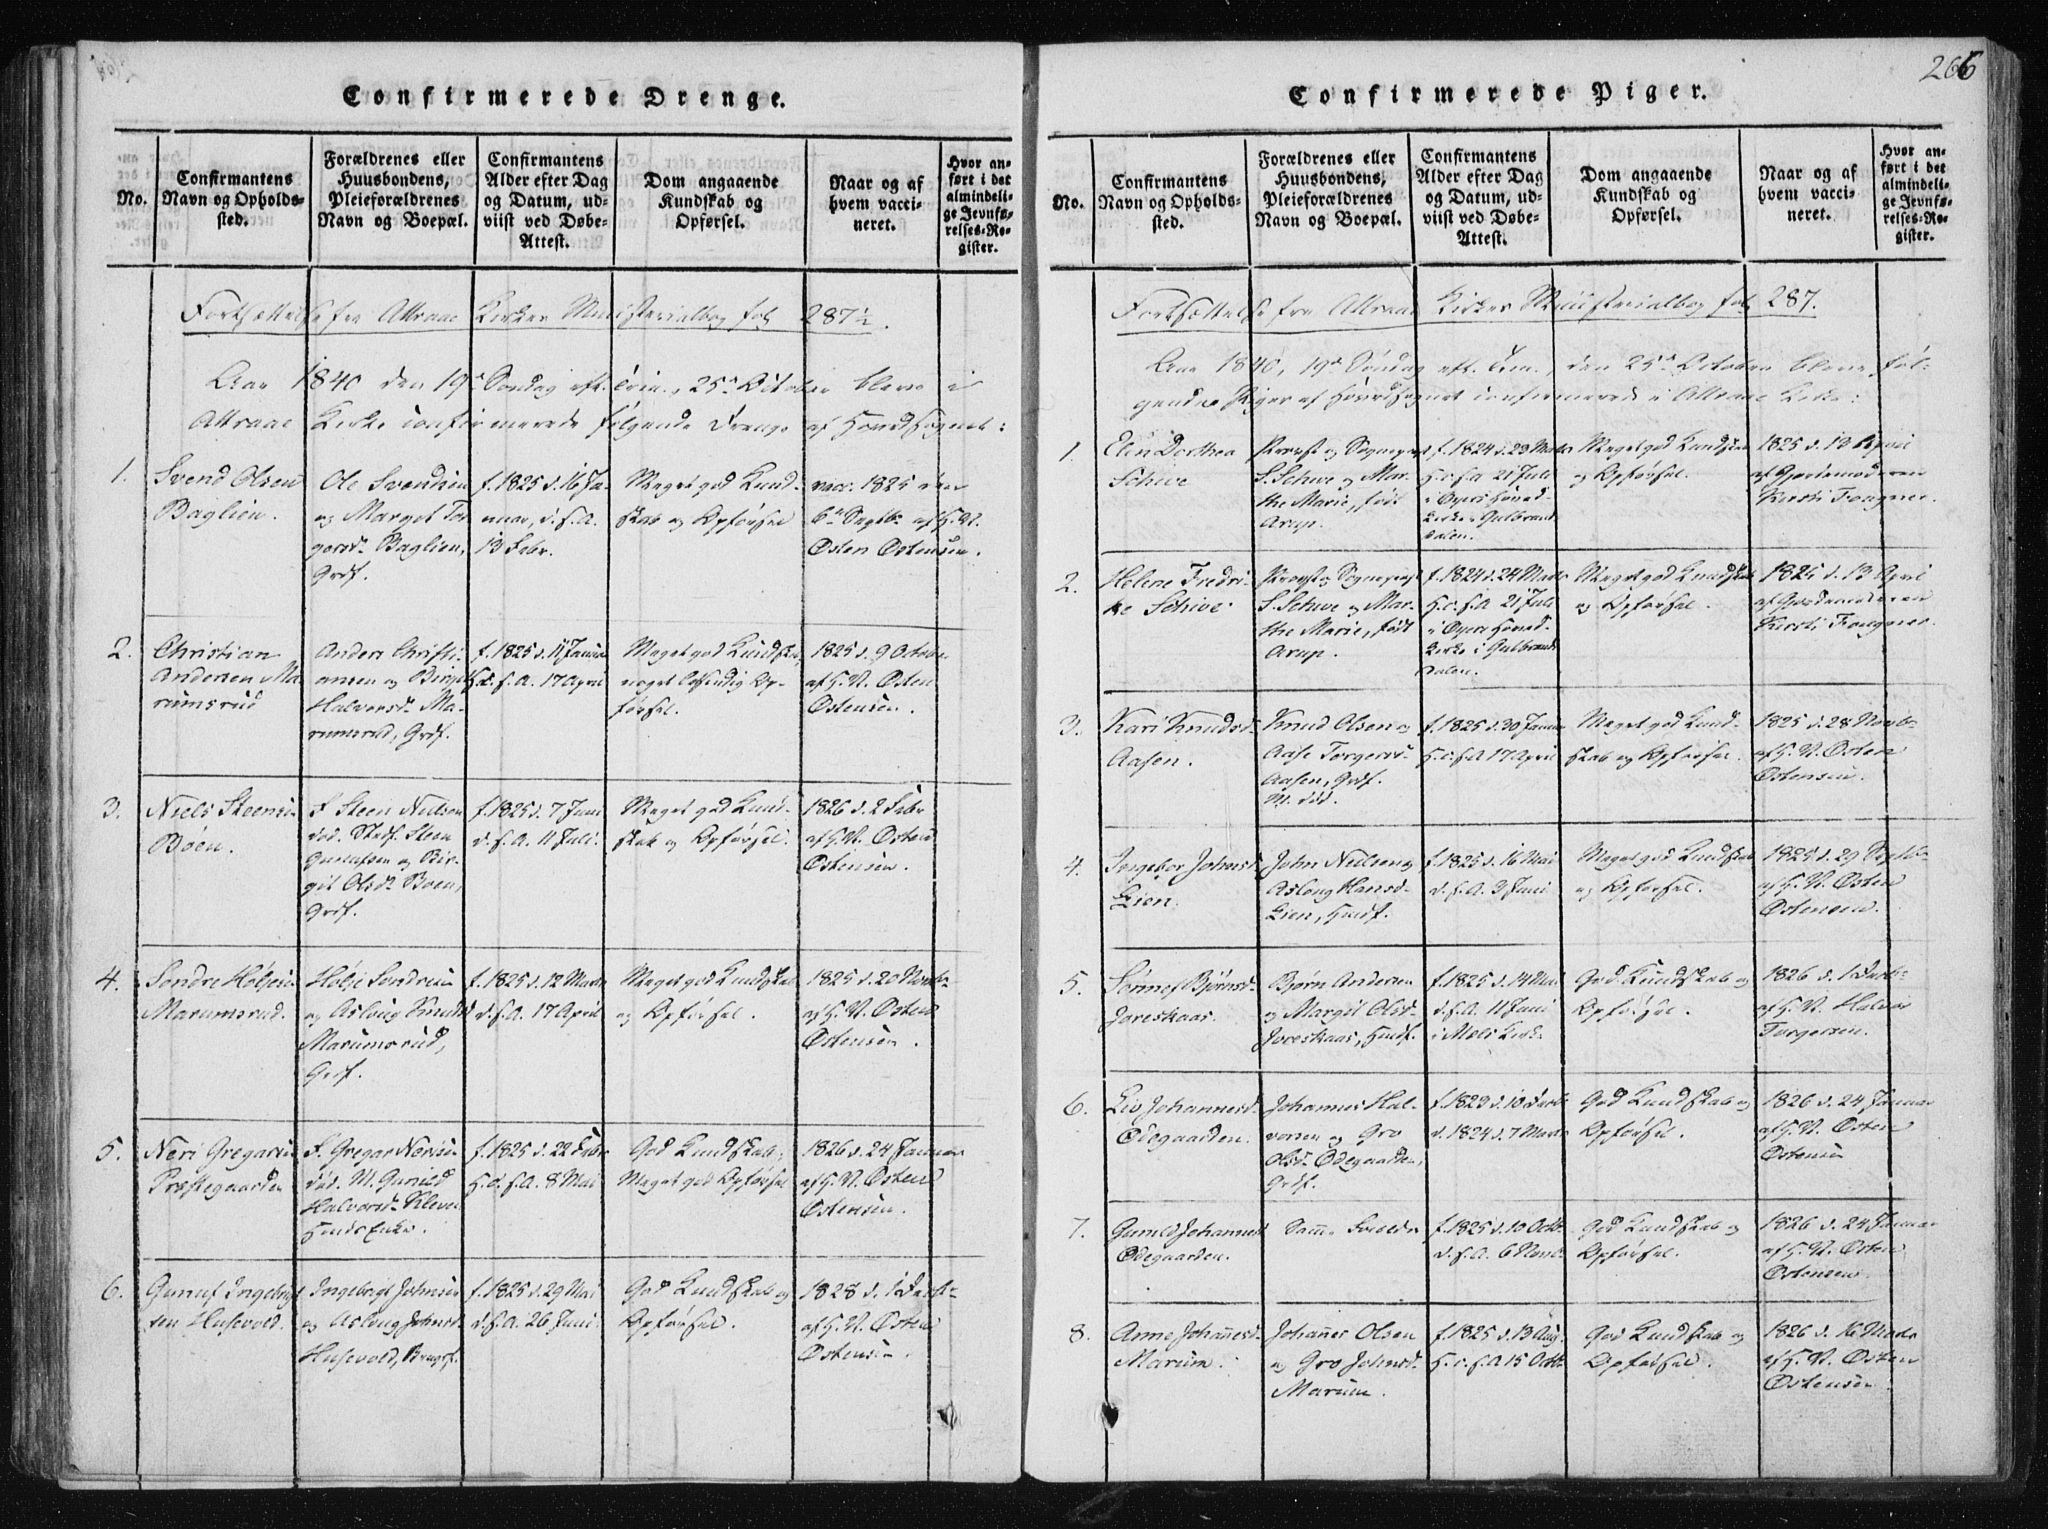 Confirmerede Drenge.
No.
Confirmantens
Navn og Opholds-
sted.
Forældrenes eller
Huusbondens,
Pleieforældrenes
Navn og Boepæl.
Confirmantens
Alder efter Dag
og Datum, ud-
viist ved Døbe-
Attest.
Dom angaaende
Kundskab og
Opførsel.
Naar og af
hvem vacci-
neret.
Hvor an-
ført i det
almindeli-
ge Jevnfø-
relses-Re-
gister.
Fortsættelse fra Attraae Kirkes Ministerialbog fol 287½.
Aar 1840 den 19de Søndag eft. Trin., 25de October bleve i
Attraae Kirke confirmerede følgende Drenge af Hovedsognet:
1.
Svend Olsen
Baglien.
Ole Svendsen
og Marget Tor
gersd. Baglien,
Grdf.
f. 1825 d. 16 Ja-
nuar, d. s. A.
13 Febr.
Meget god Kund-
skab og Opførsel
vacc. 1825 den
6te Septbr af H. N.
Østen Østensen.
2.
Christian
Andersen Ma-
rumsrud
Anders Christi-
ansen og Birgit
Halvorsd. Ma-
rumsrud, Grdf.
f. 1825 d. 11 Januar
H.d. s. A. 17 April
Meget god Kundskab,
noget Op-
førsel.
1825 d. 9 Octobr
af H. N. Østen
Østensen.
3.
Niels Steensen
Bøen.
F. Steen Nielsen
død. Stedf. Steen
Gunulfsen og Bir-
git Olsdr. Boen,
Grdf.
f. 1825 d. 7 Juni
d. s. A. 11 Juli.
Meget god Kund-
skab og Opførsel.
1826 d. 2 Febr
af H. N. Østen
Østensen.
4.
Søndre Høljesen
Marumsrud.
Hølje Søndresen
og Aslaug Knudsd
Marumsrud,
Grdf.
f. 1825 d. 12 Marts
d. s. A. 17 April
Meget god Kundskab
og Opførsel.
1825 d. 20 Novbr
af H. N. Østen
Østensen.
5.
Neri Gregarsen
Præstegaarden
F. Gregar Nerisen
død. M. Gunild
Halvorsd. Kleven
Huusf Enke.
f. 1825 d. 22 Febr
H.d. s. A. 8 Mai
God Kundskab,
Meget god Opførsel
1826 d. 24 Januar
af H. N. Østen
Østensen.
6.
Gunuf Ingebrigt
sen Husevold.
Ingebrigt Johnsen
og Aslaug Johnsd.
Husevold, Brugsf.
f. 1825 d. 29 Mai
d. s. A. 26 Juni.
God Kundskab og
Opførsel.
1828 d. 1 Decbr
af H. N. Østen
Østensen.
266
Confirmerede Piger.
No.
Confirmantens
Navn og Opholds-
sted.
Forældrenes eller
Huusbondens,
Pleieforældrenes
Navn og Boepæl.
Confirmantens
Alder efter Dag
og Datum, ud-
viist ved Døbe-
Attest.
Dom angaaende
Kundskab og
Opførsel.
Naar og af
hvem vacci-
neret.
Hvor an-
ført i det
almindeli-
ge Jevnfø-
relses-Re-
gister.
Fortsættelse fra Attraae Kirkes Ministerialbog fol 287.
Aar 1840, 19de Søndag eft. Trin., den 25de October bleve føl-
gende Piger af Hovedsognet confirmerede i Attraae Kirke:
1.
Elen Dorthea
Schive
Provst og Sognepræst
S. Schive og Mar-
the Marie, født
Arup.
f. 1824 d. 23 Marts
H.d. s A 21 Juli
i Øyers Hoved-
kirke i Gulbrands
dalen.
Meget god Kundskab
og Opførsel.
1825 d. 13 April
af Gjordemoderen
Kirsti Fougner.
2.
Helene Fredri-
ke Schive.
Provst og Sognepræst
S. Schive og Mar-
the Marie, født
Arup.
f. 1824 d. 24 Marts
H.d. s. A 21 Juli
i Øyers Hoved-
kirke i Gulbrands
dalen.
Meget god Kundskab
og Opførsel.
1825 d. 13 April
af Gjordemoderen
Kirsti Fougner.
3.
Kari Knudsd.
Aasen.
Knud Olsen og
Aase Torgersd
Aasen, Grdf.
M. død.
f. 1825 d. 30 Januar
H.d. s A 17 April
Meget god Kund-
skab og Opførsel.
1825 d. 28 Novbr
af H. N. Østen
Østensen.
4.
Ingebor Johnsd.
Lien.
John Nielsen og
Aslaug Hansd.
Lien, Husf.
f. 1825 d. 16 Mai
d. s. A. 3 Juni
Meget god Kundskab
og Opførsel.
1825 d. 29 Septb
af H. N. Østen
Østensen.
5.
Sønnef Bjørnsd.
Joreskaas.
Bjørn Andersen
og Margit Olsd.
Joreskaas, Husf.
f. 1825 d. 14 Mai
d. s. A. 11 Juni
i Mæls Kirke
God Kundskab og
Opførsel.
1826 d. 1 Decb-
af H. N. Halvor
Torgersen.
6.
Liv Johannesd.
Ødegaarden.
Johannes Hal-
vorsen og Gro
Olsdr. Ødegaarden,
Grdf.
f. 1823 d. 10 Decb
d. 1824 d. 7 Marts
God Kundskab og
Opførsel.
1826 d. 24 Januar
af H. N. Østen
Østensen
7.
Gunild Johannesd.
Ødegaarden.
Samme Forældre
f. 1825 d. 10 Octb.
d. s. A. 6 Novbr.
God Kundskab og
Opførsel.
1826 d. 24 Januar
af H. N. Østen
Østensen.
8.
Anne Johannesd.
Marum.
Johannes Olsen
og Gro Johnsd.
Marum.
f. 1825 d. 13 Aug.
H.d. s. A 15 Octb.
God Kundskab og
Opførsel.
1826 d. 16 Marts
af H. N. Østen
Østensen.